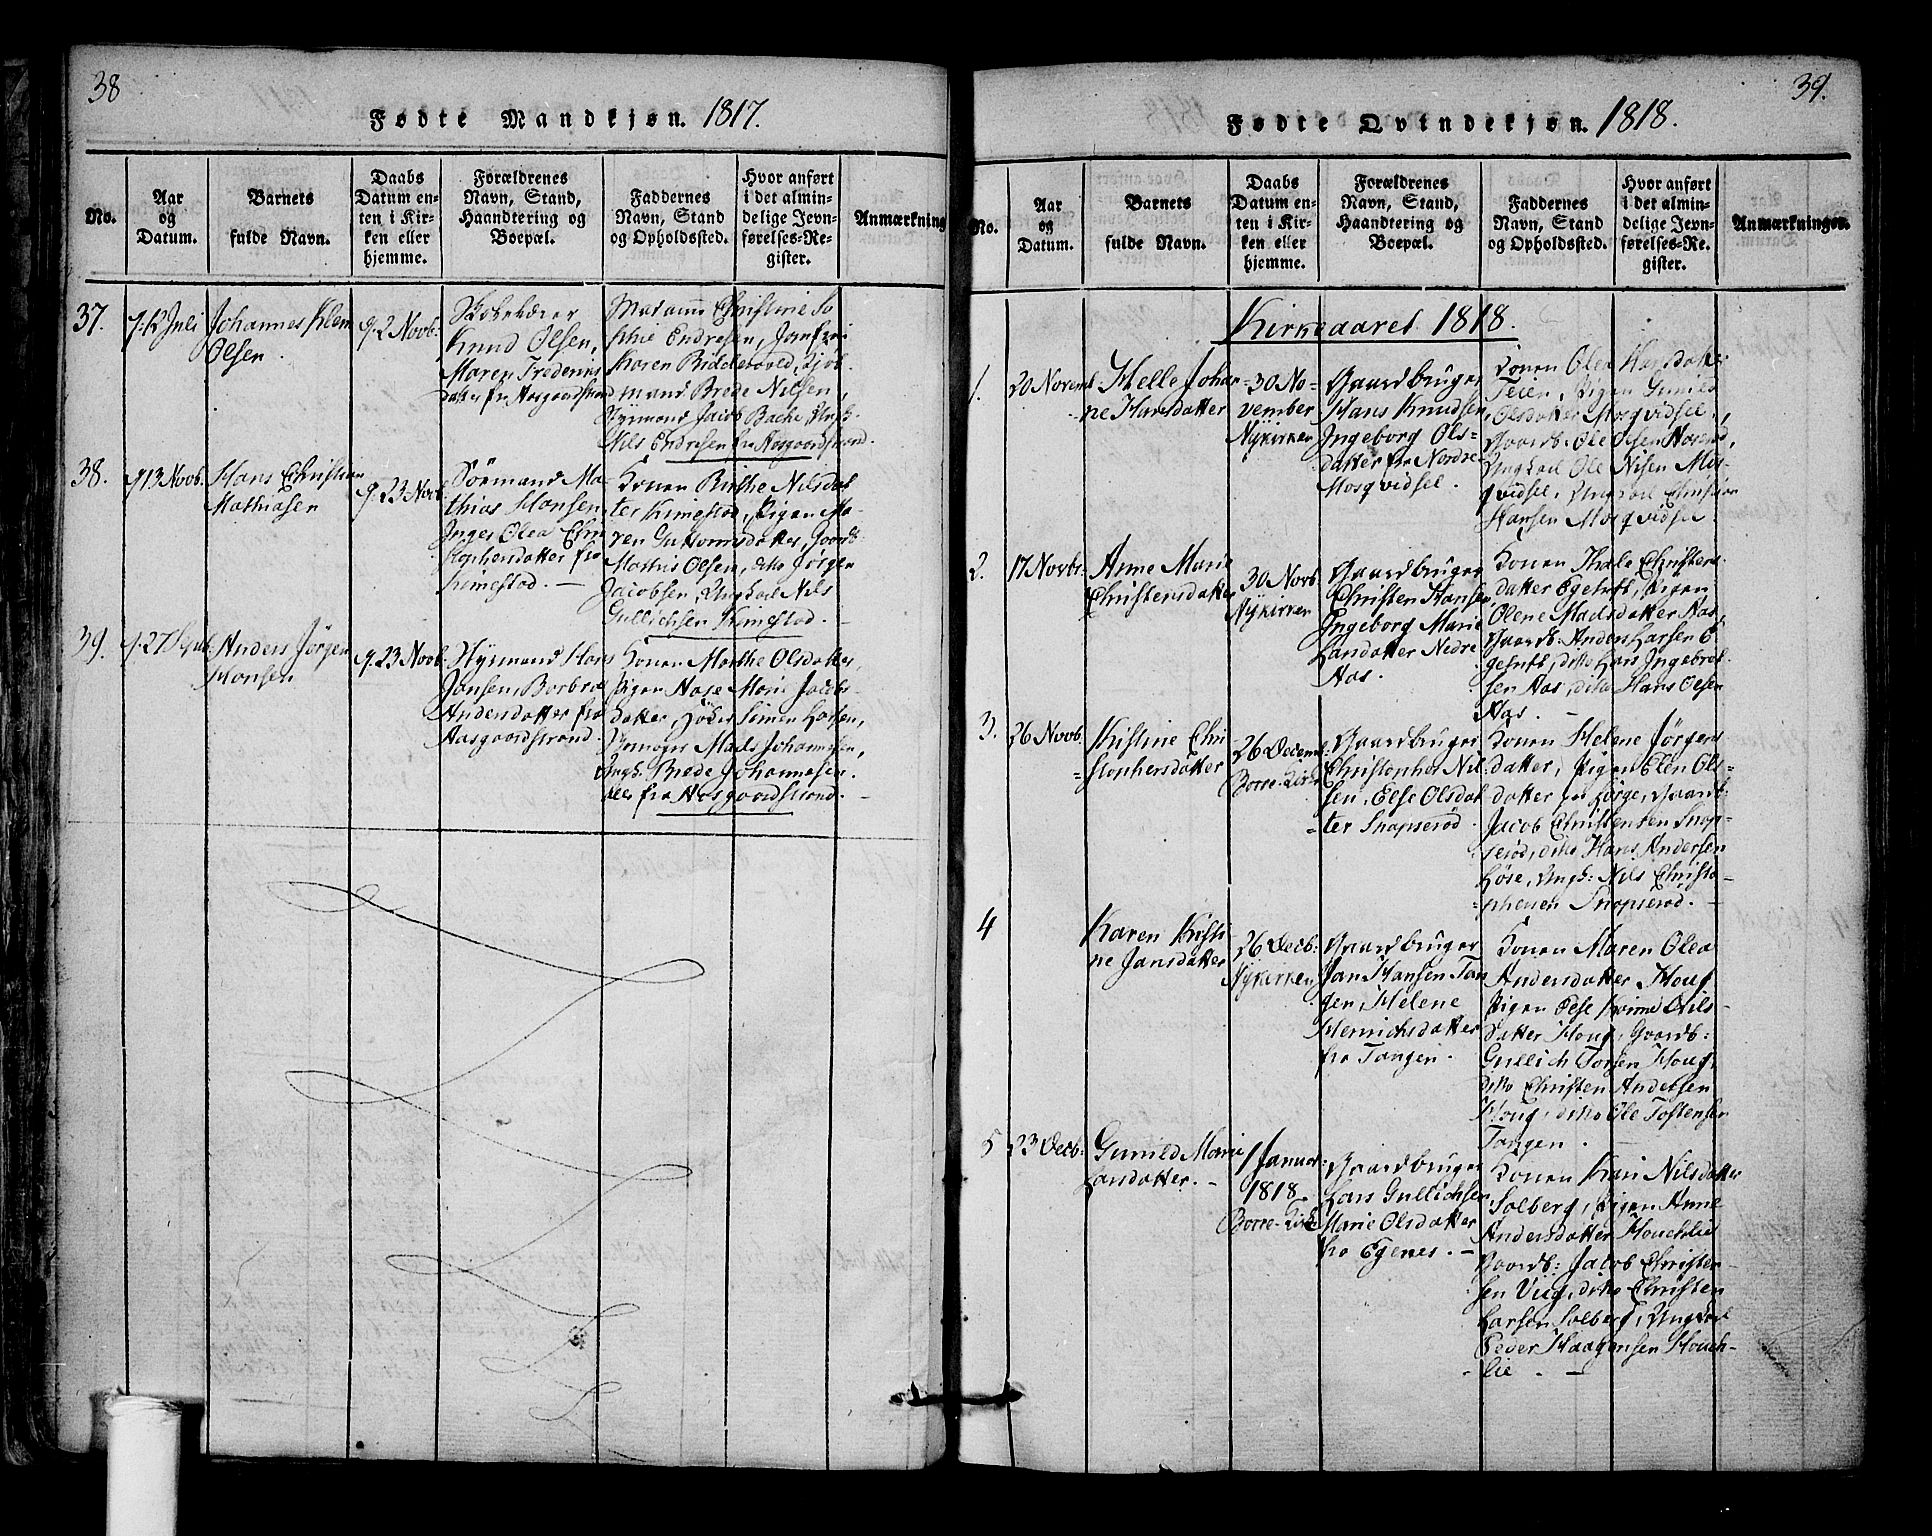 38
Fødte Mandkjøn. 1817.
No.
Aar
og
Datum.
Barnets
fulde Navn.
Daabs
Datum en-
ten i Kir-
ken eller
hjemme.
Forældrenes
Navn, Stand,
Haandtering og
Boepæl.
Faddernes
Navn, Stand
og Opholdssted.
Hvor anført
i det almin-
delige Jevn-
førelses-Re-
gister.
Anmærkning
37.
12 Juli
Johannes Klem
Olsen.
2 Novb:
Knud Olsen,
Maren Frederiks
datter fra Aasgaardstrand
Madame Christine So
phie Endresen, Jomfru
Karen Riddervold,
mand Brede Nilsen,
Styrmand Jacob Bache, Ungk.
Nils Endresen fra Aasgaardstrand.
38.
13 Novb.
Hans Christian
Mathiasen
23 Novb.
Sørmand Ma
thias Hansen,
Inger Olea Chri
stophersdatter fra
Kimestad. —
Konen Birthe Nilsdat
ter Kimestad, Pigen Ma-
ren Guttormsdatter, Gaardb
Mathis Olsen, dito Jørgen
Jacobsen, Ungkarl Nils
Gullichsen Kimestad. —
39.
27
Anders Jørgen
Hansen
23 Novb.
Styrmand Hans
Jansen, Barbra
Andersdatter fra
Aasgaardstrand.
Konen Marthe Olsdatter,
Pigen Aase Marie Jacobs-
datter, Simen Larsen,
Mads Johannesen,
Ungk. Brede Johannesen.
alle fra Aasgaardstrand. —
39.
Fødte Qvindekjøn. 1818.
No.
Aar
og
Datum.
Barnets
fulde Navn.
Daabs
Datum en-
ten i Kir-
ken eller
hjemme.
Forældrenes
Navn, Stand,
Haandtering og
Boepæl.
Faddernes
Navn, Stand
og Opholdssted.
Hvor anført
i det almin-
delige Jevn-
førelses-Re-
gister.
Anmærkninger.
Kirkeaaret 1818.
1.
20 Novemb
Helle Johan
ne Hansdatter
30 No-
vember
Nykirken
Gaardbruger
Hans Knudsen
Ingeborg Ols-
datter fra Nordre
Mosqvidsel.
Konen Olea Hansdatter
Teien, Pigen Gunild
Olsdatter Mosqvidsel,
Gaardb: Ole Olsen
Ungkarl Ole Nilsen Mos-
qvidsel, Ungkarl Christian
Hansen Mosqvidsel.
2.
17 Novbr:
Anne Marie
Christensdatter
30 Novb
Nykirken
Gaardbruger
Christen Hansen,
Ingeborg Marie
Larsdatter Nedre
Aas.
Konen Thale Christens-
datter Egetuft, Pigen
Olene Madsdatter Aas,
Gaardb: Anders Larsen E
getuft, dito Lars Ingebret
sen Aas, dito Hans Olsen
Aas. —
3.
26 Novb.
Kristine Chri
stophersdatter
26 Decemb:
Borre-Kirke
Gaardbruger
Christopher Nil-
sen, Else Olsdat
ter Snapserød.
Konen Helene Jørgens
datter, Pigen Elen Ols-
datter fra Gaardb
Jacob Christensen Snap-
serød, dito Hans Andersen
Ungk: Nils Christo-
phersen Snapserød. —
4
Karen Kisti
ne Jansdatter
26 Decb:
Nykirken
Gaardbruger
Jan Hansen Tan
gen, Helene
Henrichsdatter
fra Tangen.
Konen Maren Olea
Andersdatter Houg
Pigen Else Karine Nils-
datter Houg, Gaardb:
Gullich Torsen Houg,
dito Christen Andersen
Houg, dito Ole Tostensen
Tangen.
5
23 Decb:
Gunild Marie
Larsdatter. —
1 Januar
1818.
Borre-Kirke
Gaardbruger
Lars Gullichsen
Marie Olsdatter
fra Egenes. —
Konen Kari Nilsdatter
Solberg, Pigen Anne
Andersdatter Houchlie
Gaardb: Jacob Christen-
sen Viig, dito Christen
Larsen Solberg, Ungkarl
Peder Haagensen Houch-
lie. —